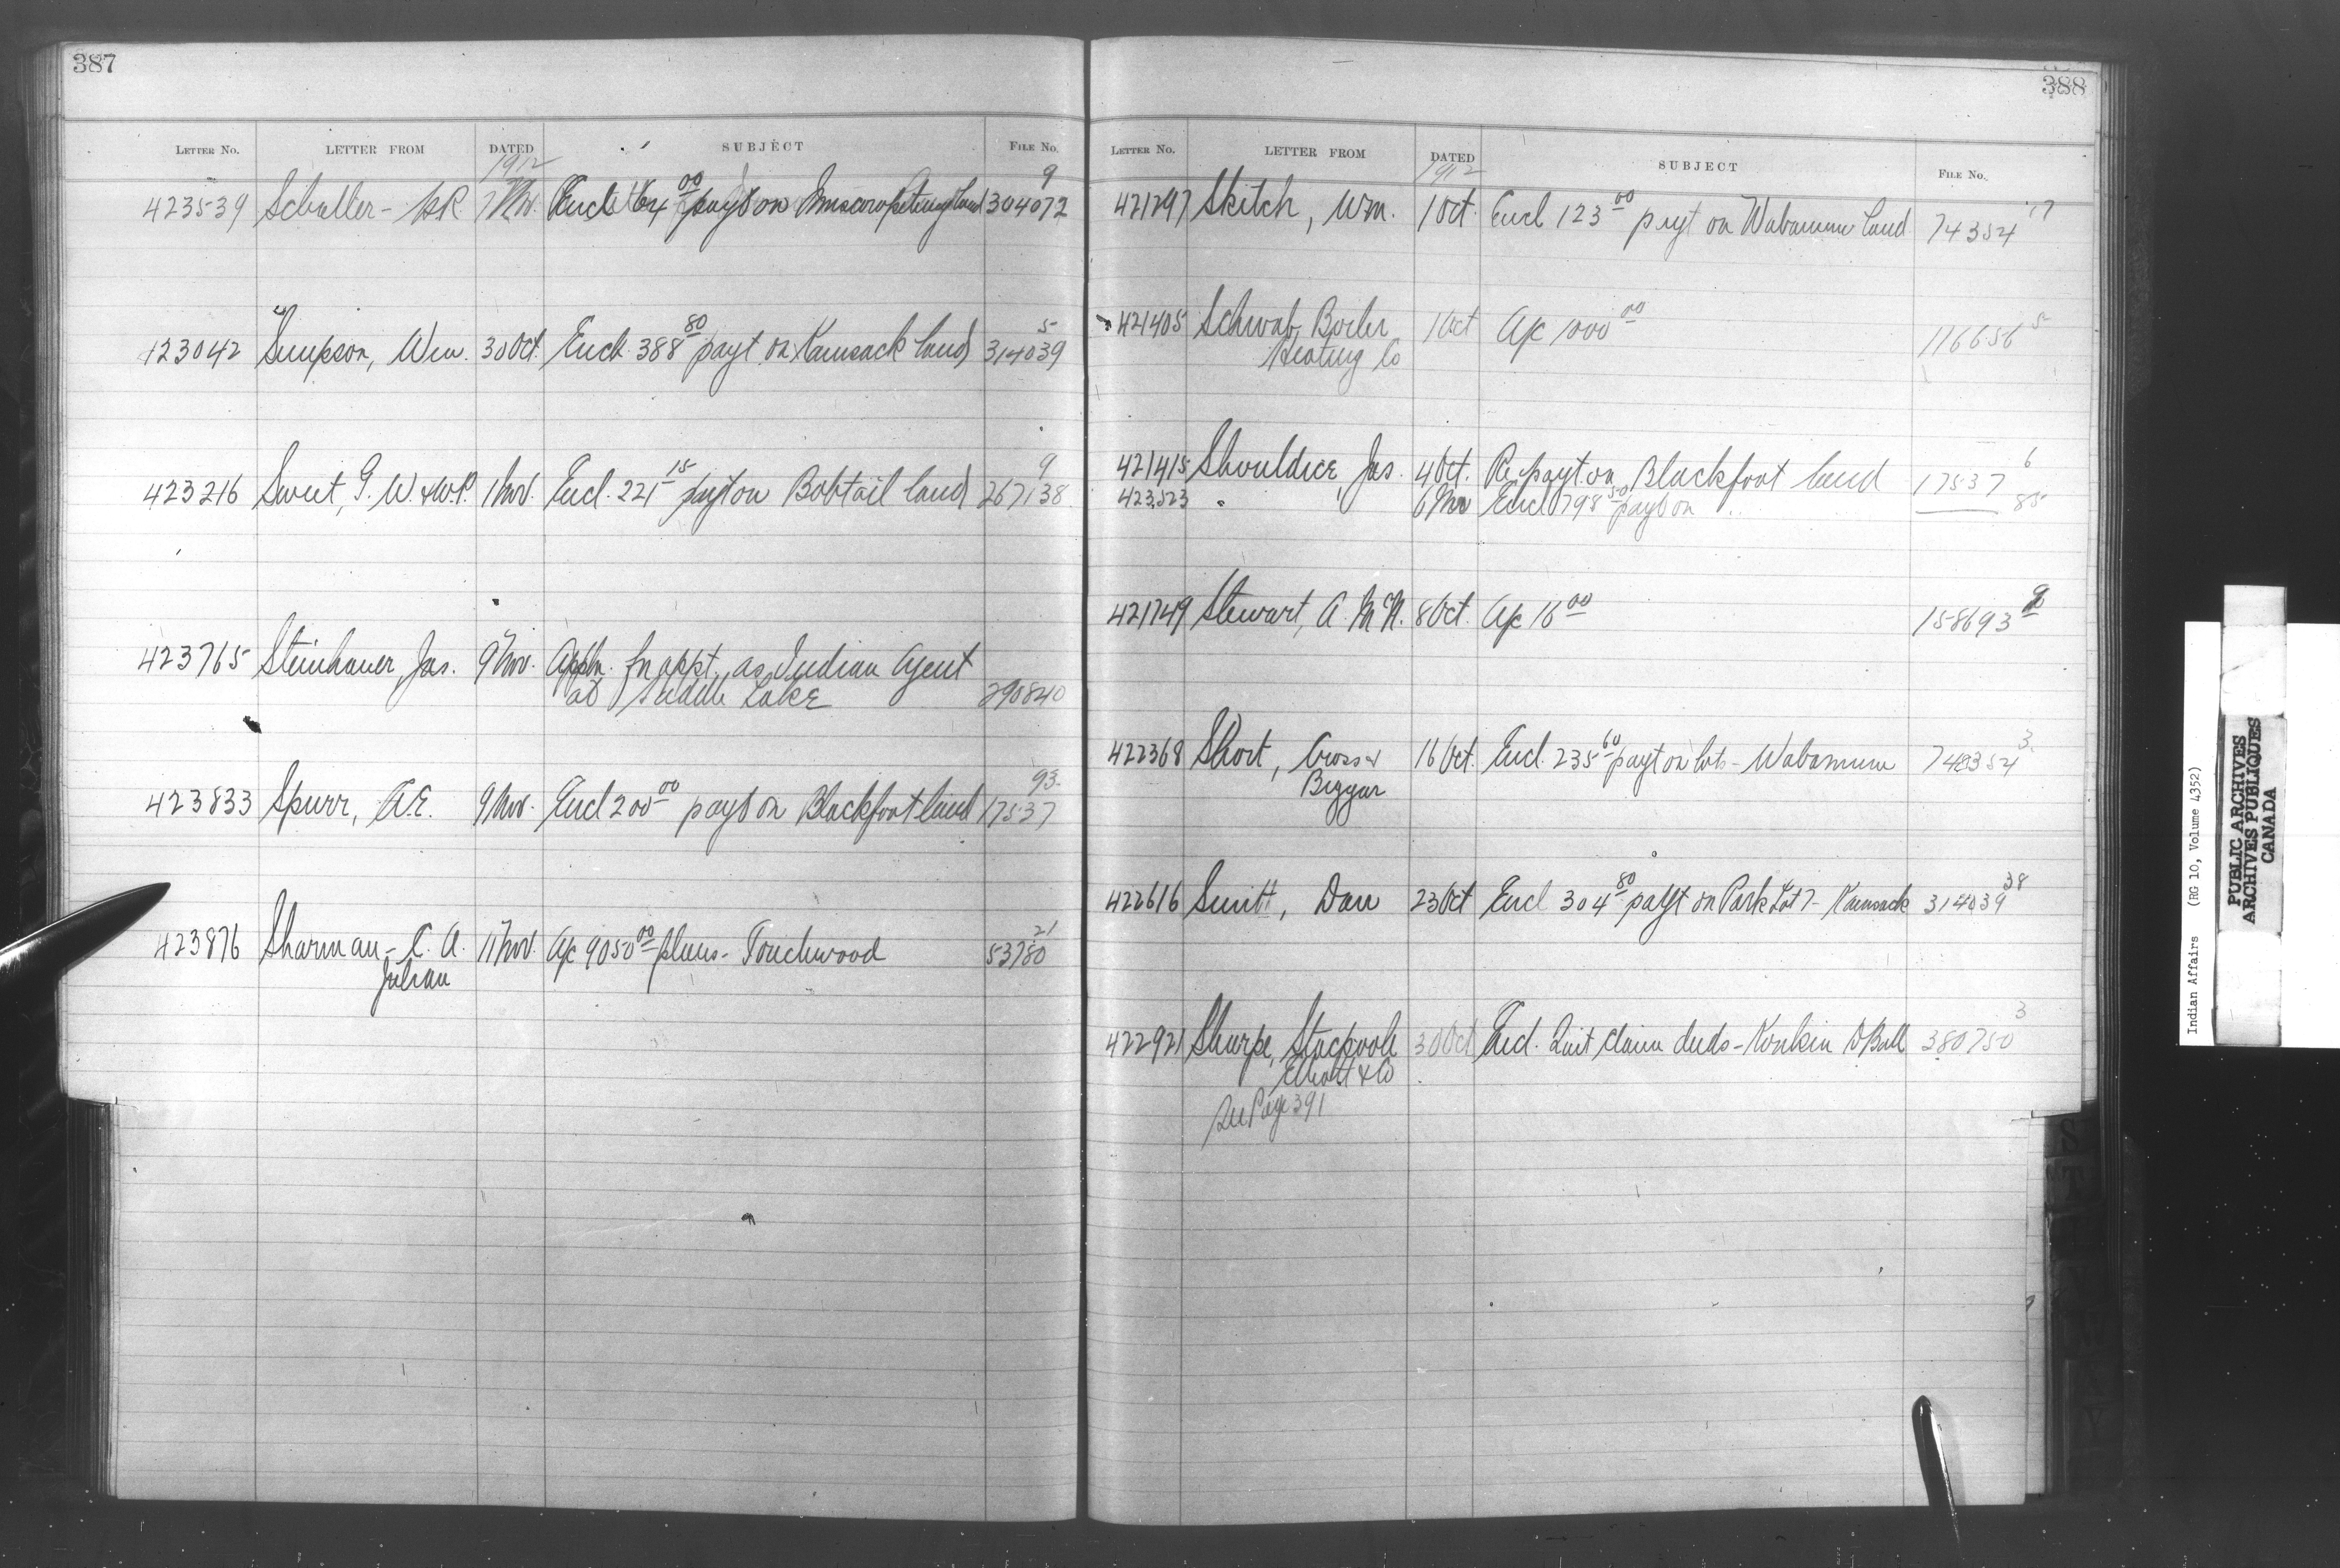 387
LETTER NO. LETTER FROM DATED SUBJECT FILE NO.
1912
423539 Schaller - 7 Nov. Encl 64 00 payt on land 304072 9
423042 Simpson, Wm. 30 Oct. Encl. 388 80 payt on Kamsack land 314039 5
423216 Sweet, G. W. & W.P. 1 Nov. Encl. 221 15 payt on Bobtail land 267138 9
423765 Steinhauer, Jas. 9 Nov. Appln. for appt. as Indian Agent
at Saddle Lake 290840
423833 Spurr, A.E. 9 Nov. Encl 200 00 payt on Blackfoot land 17537 93
423876 Sharman - C. A. 11 Nov. A/c 9050 00 plans - Touchwood 53780 21
Julian
388
LETTER NO. LETTER FROM DATED SUBJECT FILE NO.
1912
421297 Skitch, Wm. 1 Oct. Encl 123 00 payt on Wabamun land 74354 17
421405 Schwab Boiler 1 Oct A/c 1000 00 116656 5
Heating Co
421415 Shouldice, Jas. 4 Oct. Re payt on Blackfoot land 17537 6
423523 " 6 Nov Encl 798 50 payt on " 85
421749 Stewart, A. McN. 8 Oct. A/c 16 00 158693
422368 Short, Cross & 16 Oct. Encl. 235 60 payt on lots - Wabamun 748354 3
Biggar
422616 Smith, Dan 23 Oct Encl 304 80 payt on Park Lot 7 - Kamsack 314039 38
422921 Sharpe, Stackpole 30 Oct Encl. Quit Claim deeds - Konkin & Ball 380750 3
Elliott & Co
See Page 391
Indian Affairs (RG 10, Volume 4352)
PUBLIC ARCHIVES
ARCHIVES PUBLIQUES
CANADA